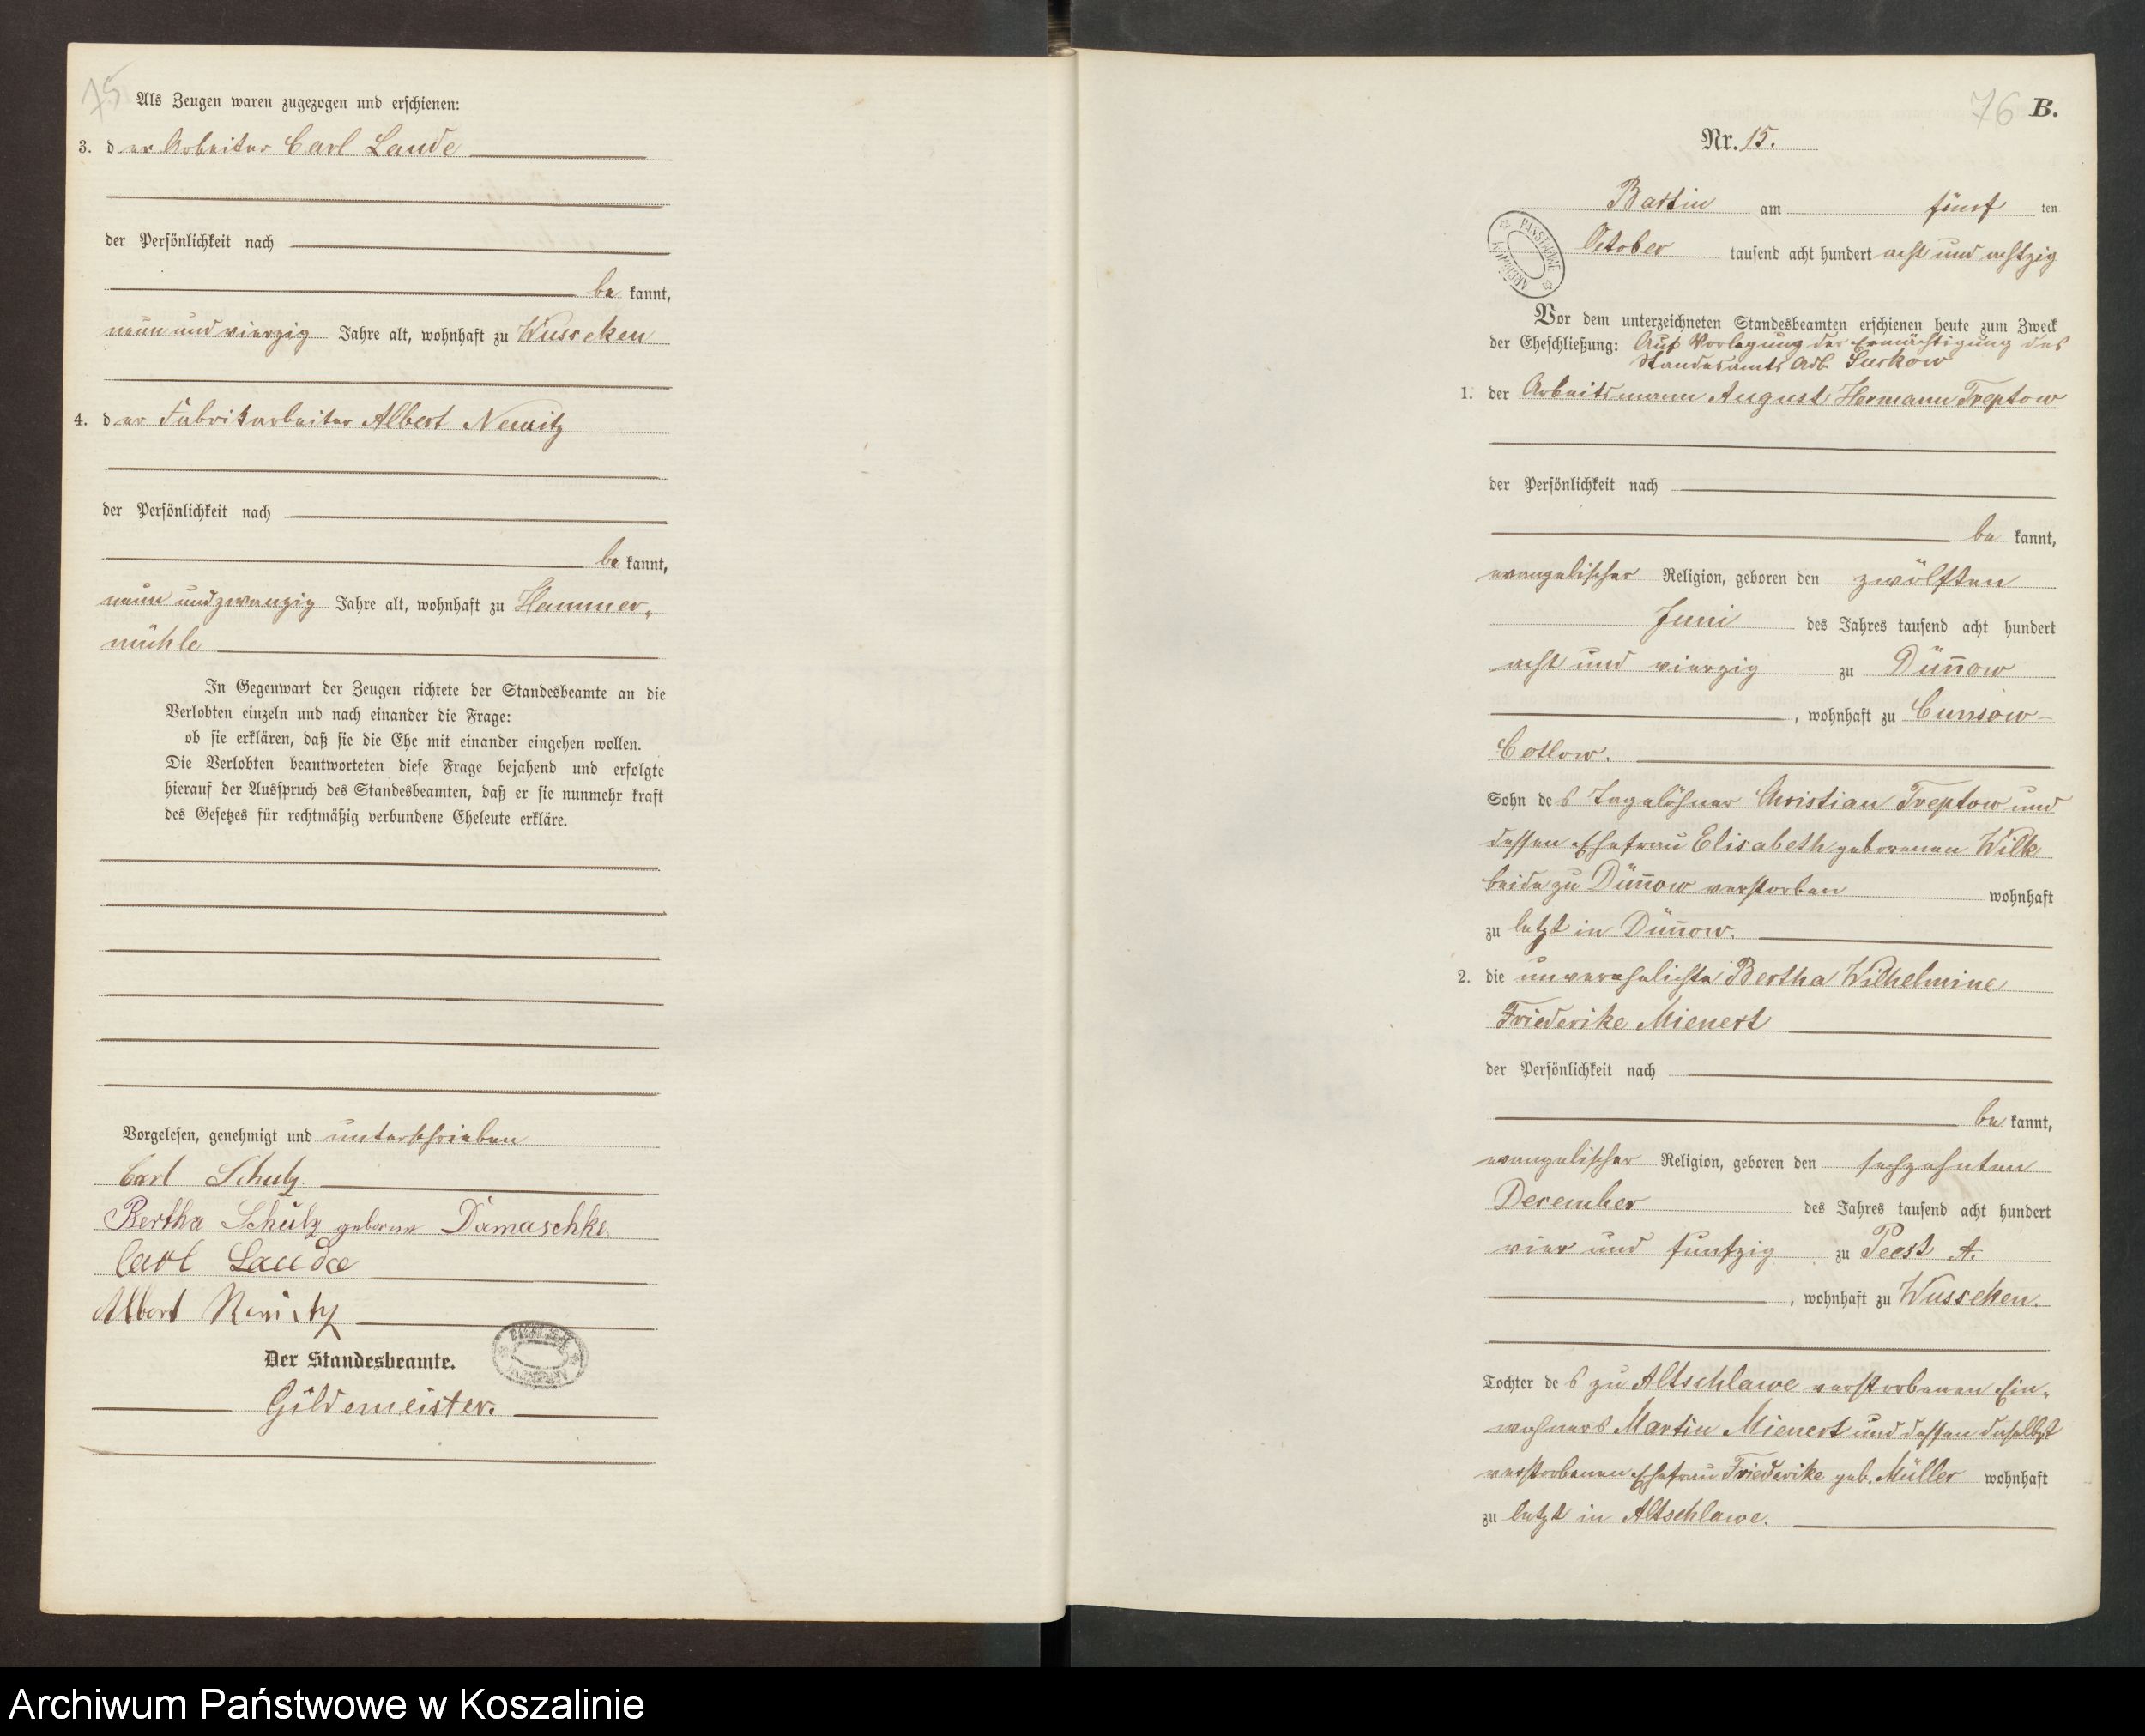 75
Als Zeugen waren zugezogen und erschienen:
3. der Arbeiter Carl Laude
der Persönlichkeit nach
bekannt,
neun und vierzig Jahre alt, wohnhaft zu Wusseken
4. der Fabrikarbeiter Albert Nemitz
der Persönlichkeit nach
bekannt,
neun und zwanzig Jahre alt, wohnhaft zu Hammer„
mühle
In Gegenwart der Zeugen richtete der Standesbeamte an die
Verlobten einzeln und nach einander die Frage:
ob sie erklären, daß sie die Ehe mit einander eingehen wollen.
Die Verlobten beantworteten diese Frage bejahend und erfolgte
hierauf der Ausspruch des Standesbeamten, daß er sie nunmehr kraft
des Gesetzes für rechtmäßig verbundene Eheleute erkläre.
Vorgelesen, genehmigt und unterschrieben
Carl Schulz.
Bertha Schulz geborne Damaschke.
Carl Laude
Albert Nemitz
Der Standesbeamte.
Gildemeister.
76 B.
Nr. 15.
Bartin am fünf ten
October tausend acht hundert acht und achtzig
Vor dem unterzeichneten Standesbeamten erschienen heute zum Zweck
der Eheschließung: Auf Vorlegung der Ermächtigung des
Standesamts Adl. Suckow
1. der Arbeitsmann August Hermann Treptow
der Persönlichkeit nach
bekannt,
evangelischer Religion, geboren den zwölften
Juni des Jahres tausend acht hundert
acht und vierzig zu Dün̄ow
, wohnhaft zu Cunsow-
Cotlow.
Sohn des Tagelöhner Christian Treptow und
dessen Ehefrau Elisabeth geborenen Wilk
beide zu Dün̄ow verstorben wohnhaft
zu letzt in Dün̄ow.
2. die unverehelichte Bertha Wilhelmine
Friederike Mienert
der Persönlichkeit nach
bekannt,
evangelischer Religion, geboren den sechzehnten
December des Jahres tausend acht hundert
vier und funfzig zu Peest A.
, wohnhaft zu Wusseken.
Tochter des zu Altschlawe verstorbenen Ein„
wohners Martin Mienert und dessen daselbst
verstorbenen Ehefrau Friederike geb. Müller wohnhaft
zu letzt in Altschlawe.
Archiwum Państwowe w Koszalinie